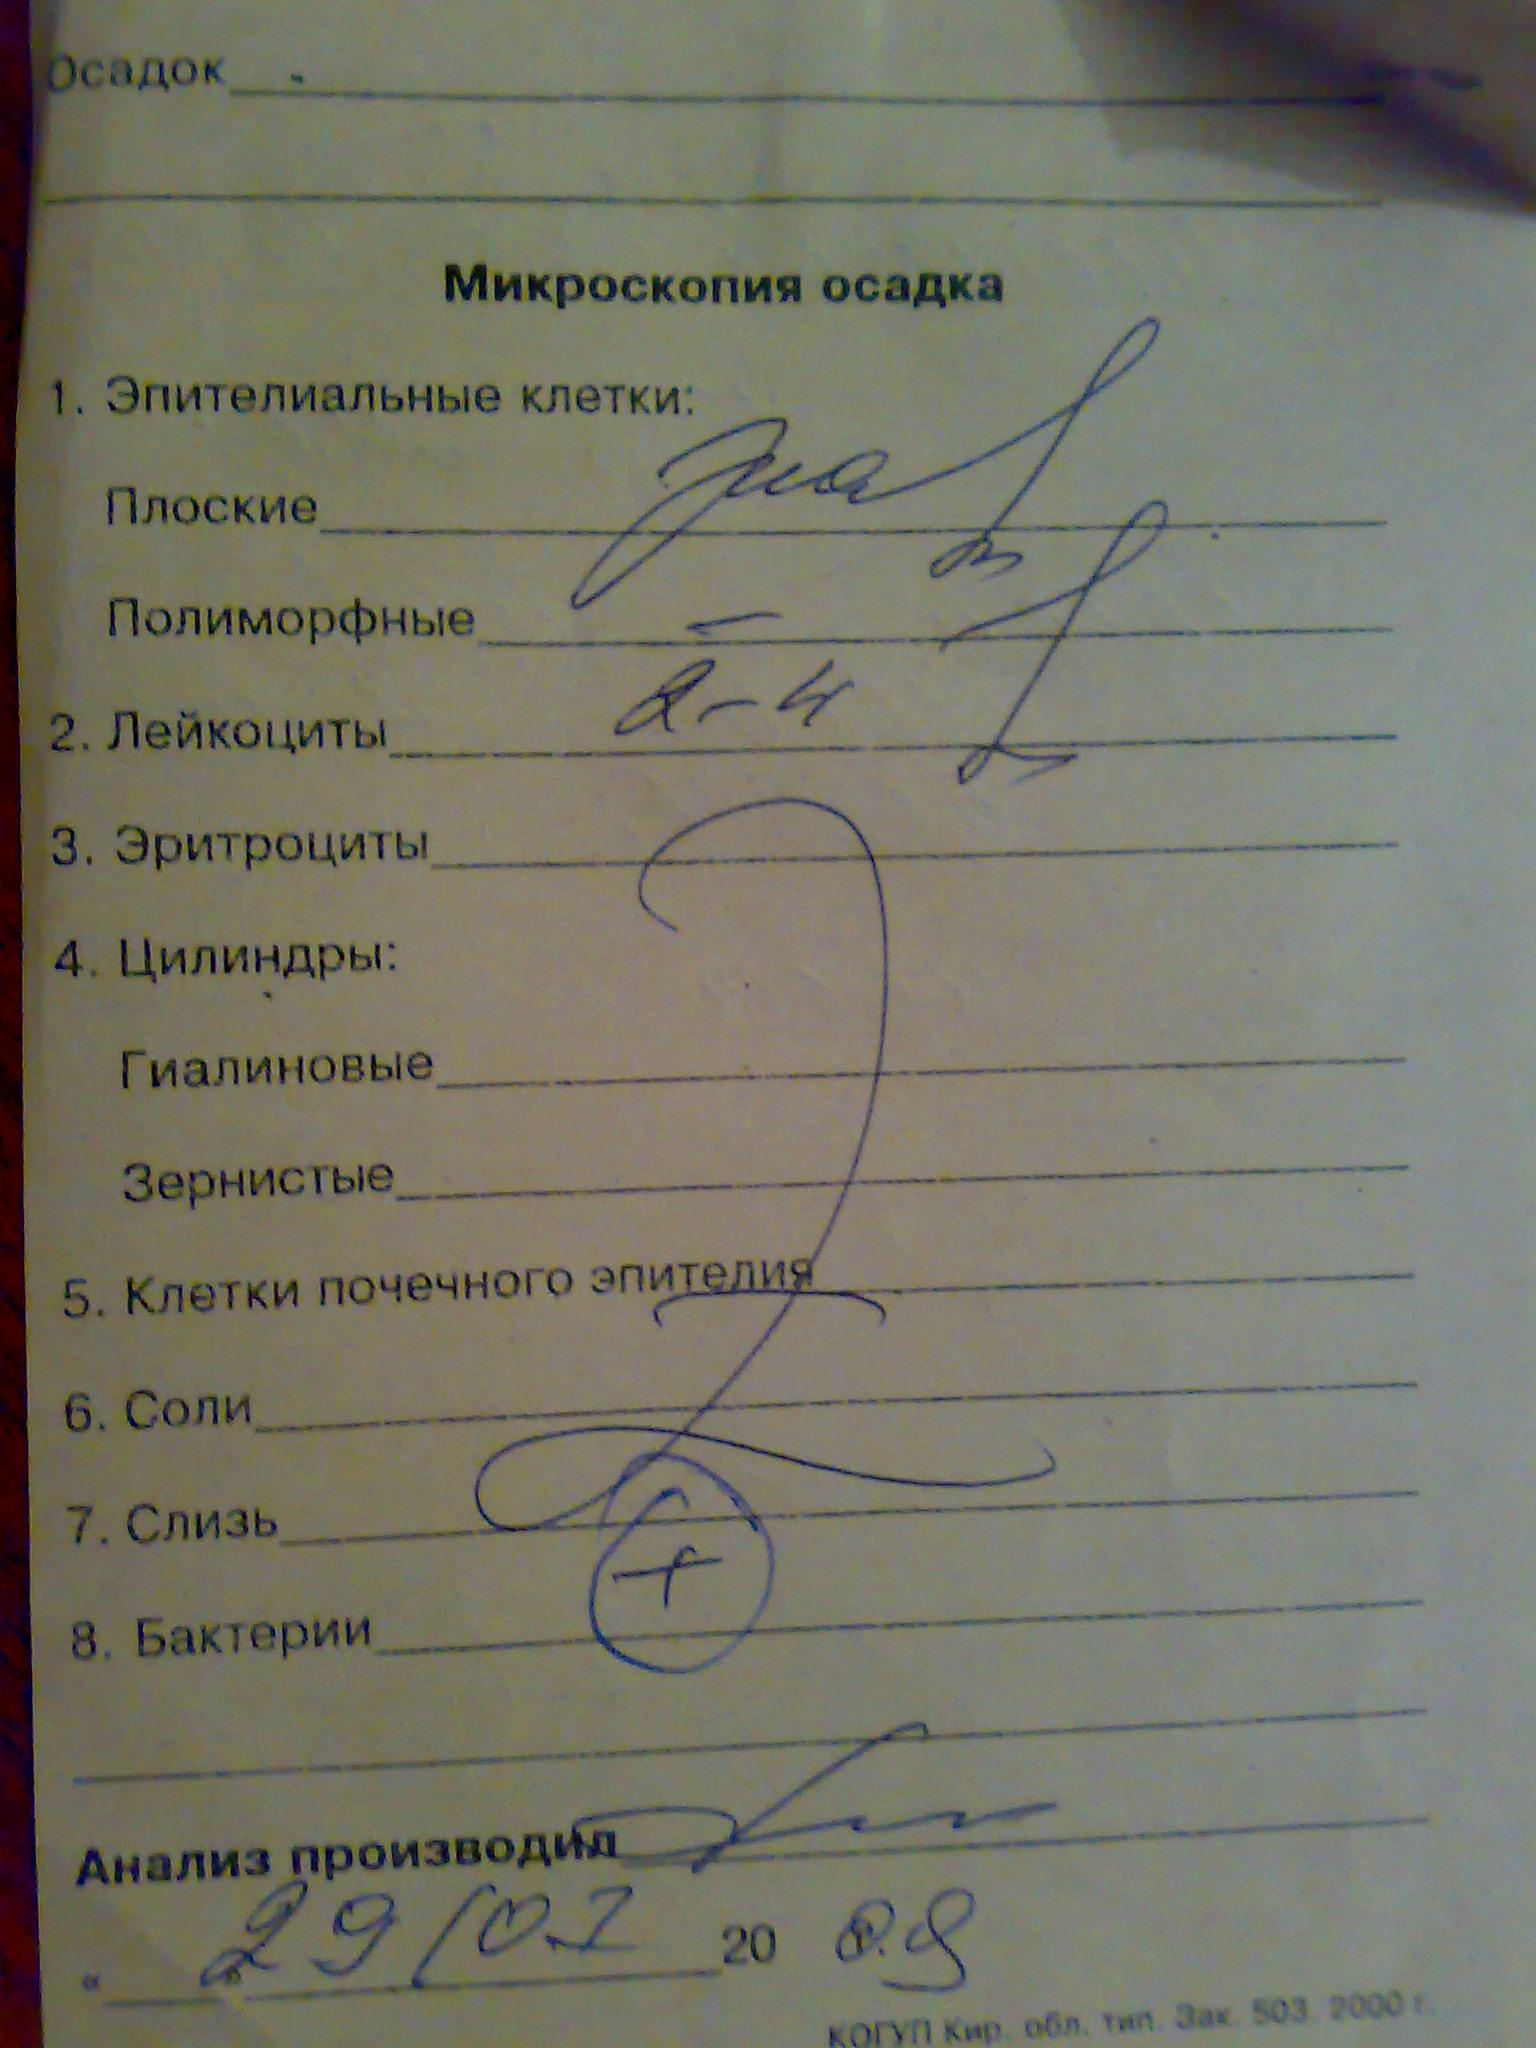 Осадок -
Микроскопия осадка
1. Эпителиальные клетки:
Плоские
Полиморфные -
2. Лейкоциты 2-4
3. Эритроциты
4. Цилиндры:
Гиалиновые
Зернистые
5. Клетки почечного эпителия
6. Соли
7. Слизь
8. Бактерии +
Анализ производил
« 29/01 20 09
КОГУП Кир. обл. тип. Зак. 503. 2000 г.